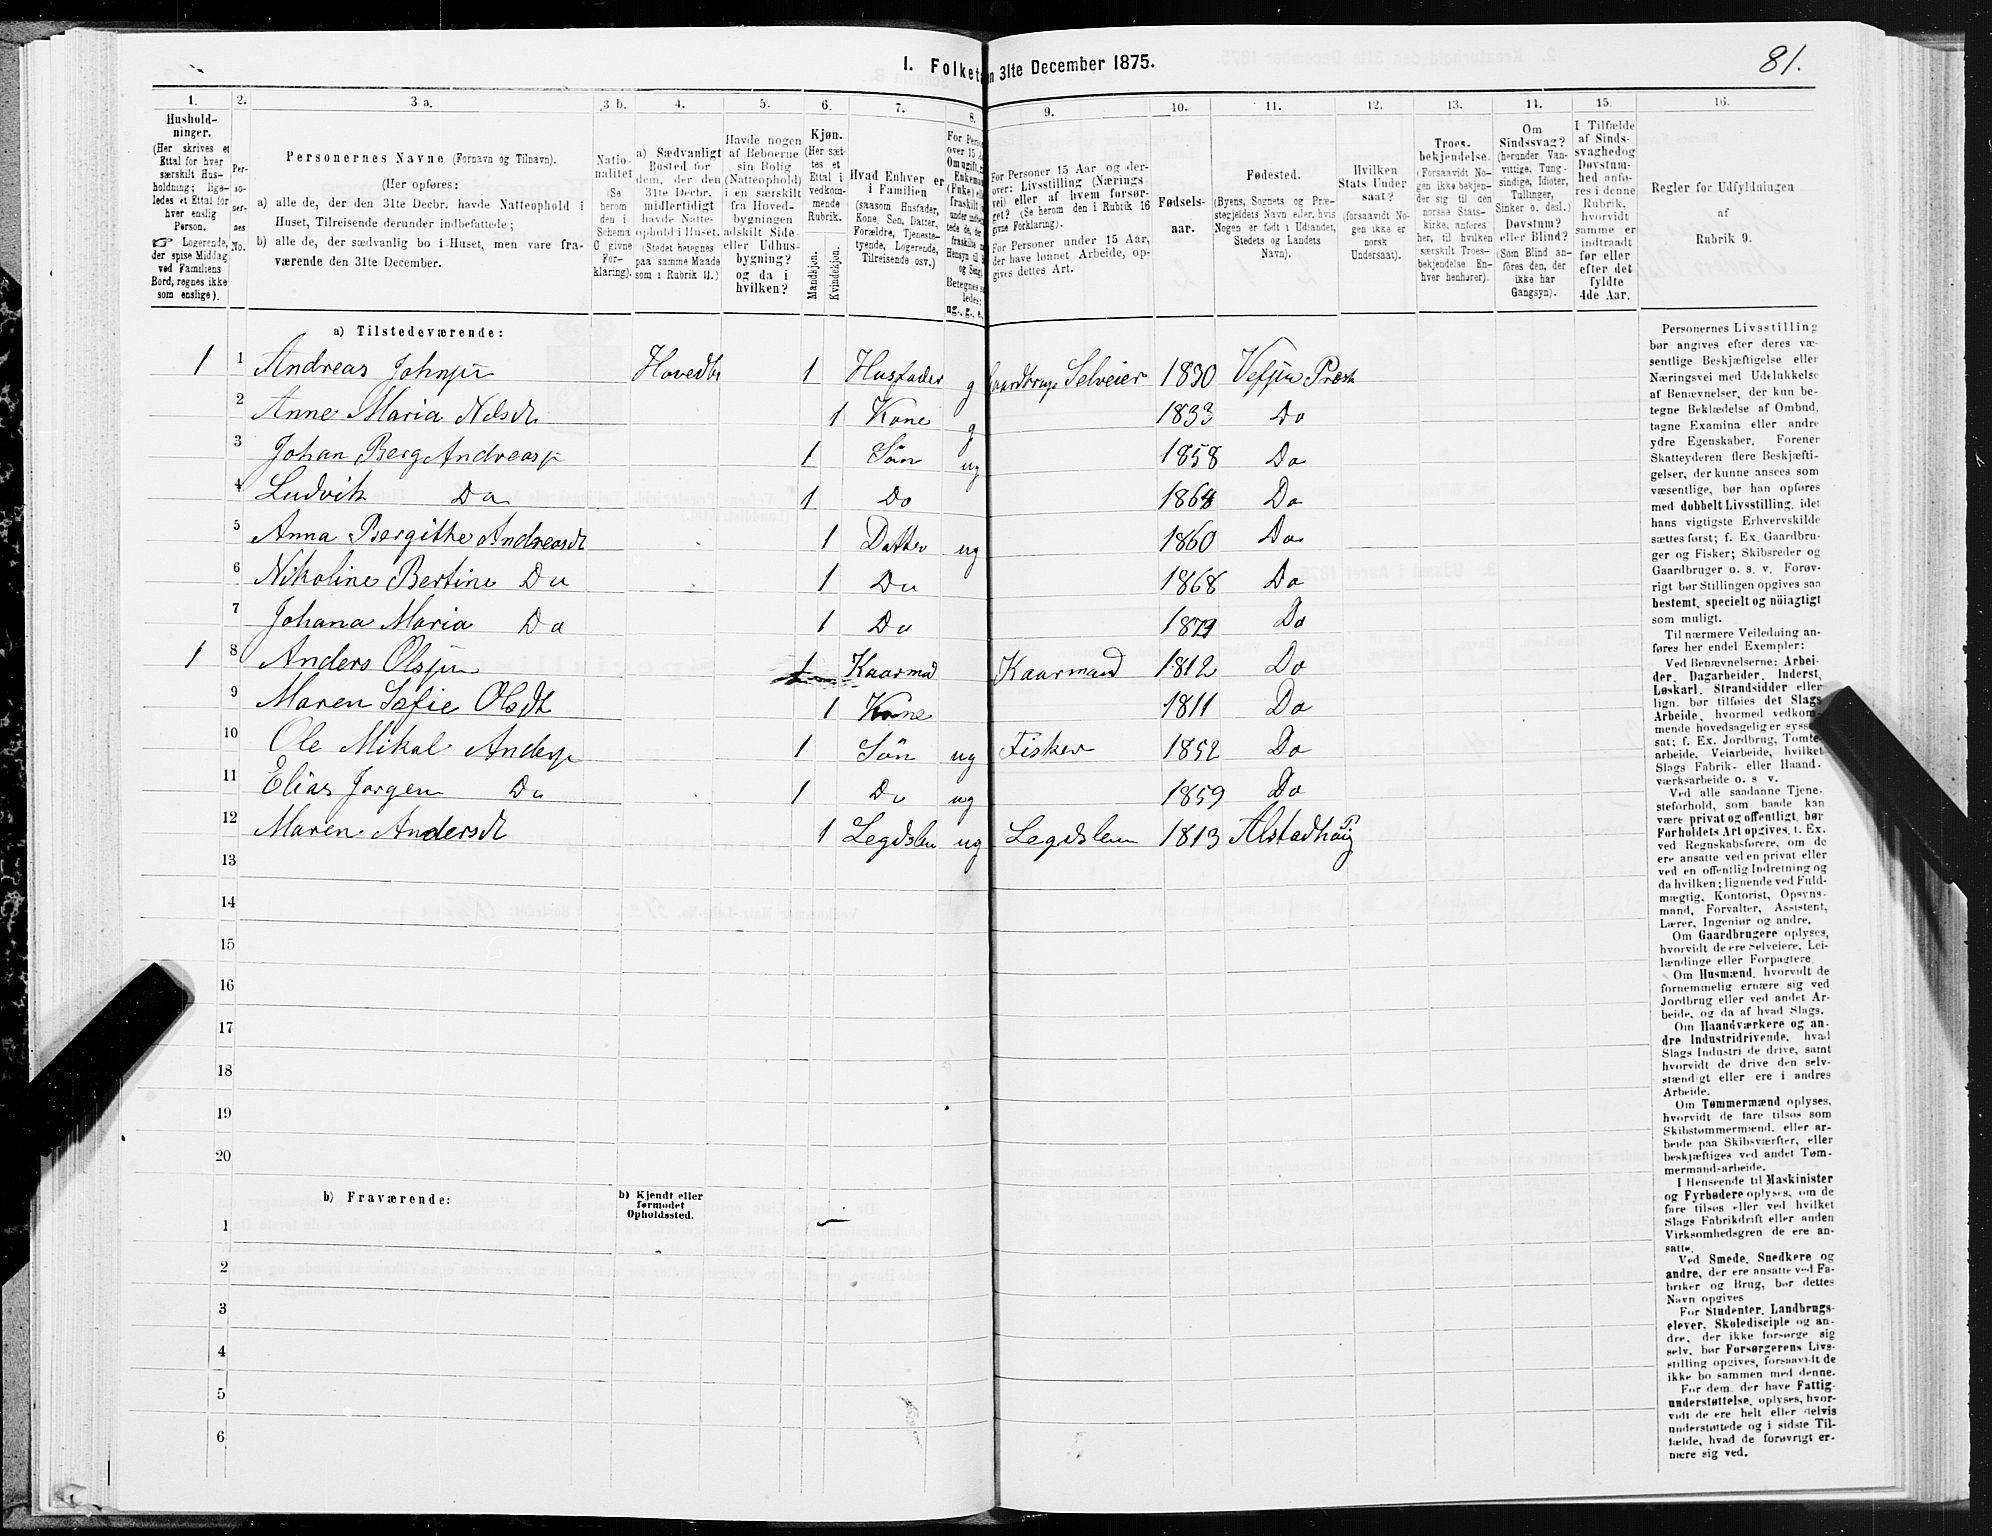 81.
I. Folketæ n 31te December 1875.
1. 2. 3 a. 3 b. 4. 5. 6. 7. 8. 9. 10. 11. 12. 13. 14. 15. 16.
Hushold-
ninger.
(Her skrives et
Ettal for hver
særskilt Hus-
holdning; lige-
ledes et Ettal for
hver enslig
Person.
☞ Logerende,
der spise Middag
ved Familiens
Bord, regnes ikke
som enslige).
Per-
so-
ner-
nes
No.
Personernes Navne (Fornavn og Tilnavn).
(Her opføres:
a) alle de, der den 31te Decbr. havde Natteophold i
Huset, Tilreisende derunder indbefattede;
b) alle de, der sædvanlig bo i Huset, men vare fra-
værende den 31te December.
Natio-
nalitet
(Se
herom
den i
Schema
O givne
For-
klaring).
a) Sædvanligt
Bosted for
dem, der den
31te Decbr.
midlertidigt
havde Natte-
ophold i Huset.
(Stedet betegnes
paa samme Maade
som i Rubrik 11.)
Havde nogen
af Beboerne
sin Bolig
(Natteophold)
i en særskilt
fra Hoved-
bygningen
adskilt Side-
eller Udhus-
bygning?
og da i
hvilken?
Kjøn.
(Her sæt-
tes et
Ettal i
vedkom-
mende
Rubrik.
Mandkjøn.
Kvindekjøn.
Hvad Enhver er
i Familien
(saasom Husfader,
Kone, Søn, Datter,
Forældre, Tjeneste-
tyende, Logerende,
Tilreisende osv.)
For Personer 15 Aar og der-
over: Livsstilling (Nærings-
vei) eller af hvem forsør-
get? (Se herom den i Rubrik 16
givne Forklaring).
For Personer under 15 Aar,
der have lønnet Arbeide, op-
gives dettes Art.
Fødsels-
aar.
Fødested.
(Byens, Sognets og Præ-
stegjeldets Navn eller, hvis
Nogen er født i Udlandet,
Stedets og Landets
Navn).
Hvilken
Stats Under-
saat?
(forsaavidt No-
gen ikke er
norsk
Undersaat).
Troes-
bekjendelse.
(Forsaavidt No-
gen ikke bekjen-
der sig til den
norske Stats-
kirke, anføres
her, til hvilken
særskilt Troes-
bekjendelse En-
hver henhører).
Om
Sindssvag?
(herunder Van-
vittige, Tung-
sindige, Idioter,
Tullinger,
Sinker o. desl.)
Døvstum?
eller Blind?
(Som Blind an-
føres den, der
ikke har
Gangsyn).
I Tilfælde
af Sinds-
svaghed og
Døvstum-
hed anfø-
res i denne
Rubrik,
hvorvidt
samme er
indtraadt
før eller
efter det
fyldte
4de Aar.
Regler for Udfyldningen
af
Rubrik 9.
a) Tilstedeværende:
1 1 Andreas Johnsen Hovedb 1 Husfader g Gaardbruge Selveier 1830 Vefsen Præst
2 Anne Maria Nilsdt 1 Kone g 1833 Do
3 Johan Berg Andreass 1 Sön ug 1858 Do
4 Ludvik Do 1 Do 1864 Do
5 Anna Bergithe Andreasdt 1 Datter ug 1860 Do
6 Nikoline Bertine Do 1 Do 1868 Do
7 Johana Maria Do 1 Do 1871 Do
1 8 Anders Olsen 1 Kaarmd Kaarmand 1812 Do
9 Maren Sofie Olsdt 1 Kone 1811 Do
10 Ole Mikal Anders 1 Sön ug Fisker 1852 Do
11 Elias Jørgen Do 1 Do ug 1859 Do
12 Maren Andersdt 1 Legdslem ug Legdslem 1813 Alstadhoug P
13
14
15
16
17
18
19
20
b) Fraværende:
b) Kjendt eller
formodet
Opholdssted.
1
2
3
4
5
6
Personernes Livsstilling
bør angives efter deres væ-
sentlige Beskjæftigelse eller
Næringsvei med Udelukkelse
af Benævnelser, der kun be-
tegne Beklædelse af Ombud,
tagne Examina eller andre
ydre Egenskaber. Forener
Skatteyderen flere Beskjæfti-
gelser, der kunne ansees som
væsentlige, bør han opføres
med dobbelt Livsstilling, idet
hans vigtigste Erhvervskilde
sættes først; f. Ex. Gaardbru-
ger og Fisker; Skibsreder og
Gaardbruger o. s. v. Forøv-
rigt bør Stillingen opgives saa
bestemt, specielt og nöiagtigt
som muligt.
Til nærmere Veiledning an-
føres her endel Exempler:
Ved Benævnelserne: Arbei-
der, Dagarbeider, Inderst,
Løskarl, Strandsidder eller
lign. bør tilføies det Slags
Arbeide, hvormed vedkom-
mende hovedsagelig er syssel-
sat; f. Ex. Jordbrug, Tomte-
arbeide, Veiarbeide, hvilket
Slags Fabrik- eller Haand-
værksarbeide o. s. v.
Ved alle saadanne Tjene-
steforhold, som baade kan
være privat og offentligt, bør
Forholdets Art opgives, t. Ex.
ved Regnskabsførere, om de
ere ansatte ved en privat eller
ved en offentlig Indretning og
da hvilken; lignende ved Fuld-
mægtig, Kontorist, Opsyns-
mand, Forvalter, Assistent,
Lærer, Ingeniør og andre.
Om Gaardbrugere oplyses,
hvorvidt de ere Selveiere, Lei-
lændinge eller Forpagtere.
Om Husmænd, hvorvidt de
fornemmelig ernære sig ved
Jordbrug eller ved andet Ar-
beide, og da af hvad Slags.
Om Haandværkere og an-
dre Industridrivende, hvad
Slags Industri de drive, samt
hvorvidt de drive den selv-
stændigt eller ere i andres
Arbeide.
Om Tømmermænd oplyses,
hvorvidt de fare tilsøs som
Skibstømmermænd, eller ar-
beide paa Skibsværfter, eller
beskjæftiges ved andet Tøm-
mermandsarbeide.
I Henseende til Maskinister
og Fyrbødere oplyses, om de
fare tilsøs eller ved hvilket
Slags Fabrikdrift eller anden
Virksomhedsgren de ere an-
satte.
Ved Smede, Snedkere og
andre, der ere ansatte ved Fa-
briker og Brug, bør dettes
Navn opgives
For Studenter, Landbrugs-
elever, Skoledisciple og an-
dre, der ikke forsørge sig
selv, bør Forsørgerens Livs-
stilling opgives, forsaavidt de
ikke bo sammen med denne.
For dem, der have Fattig-
understøttelse, oplyses, hvor-
vidt de ere helt eller delvis
understøttede og i sidste Til-
fælde, hvad de forøvrigt er-
nære sig ved.